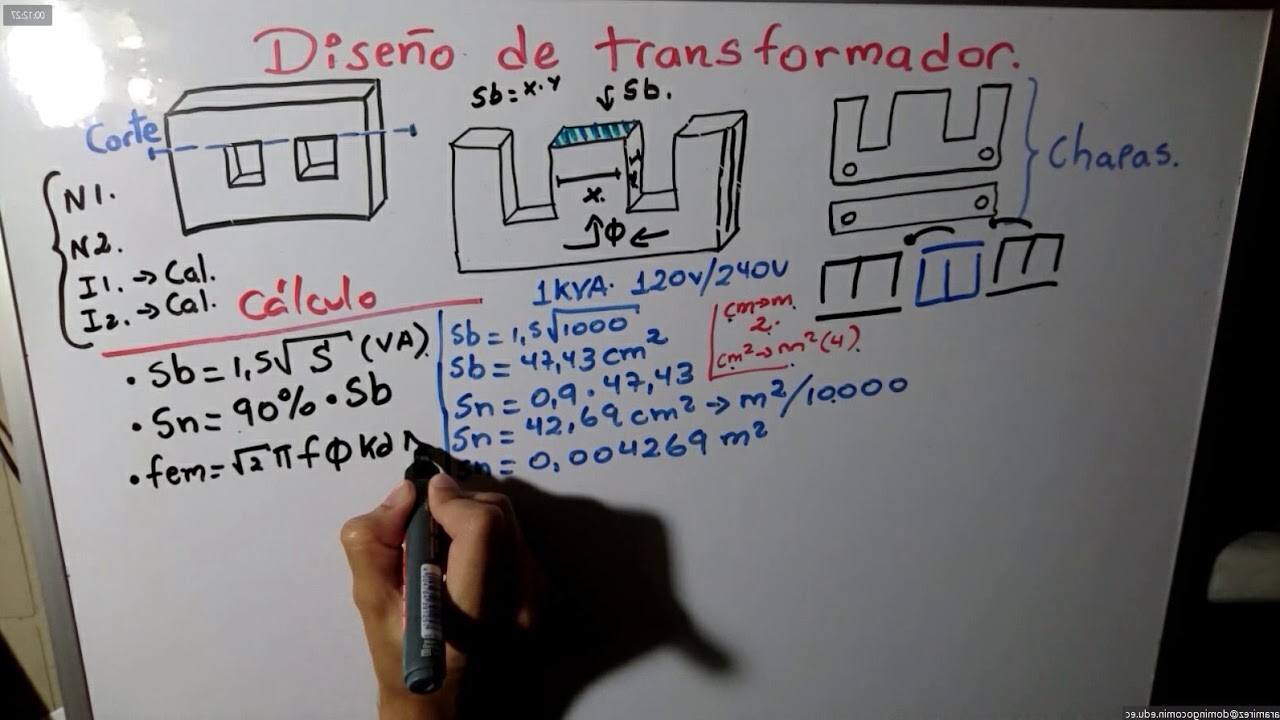 00:12:27
Diseño de transformador.
Corte
Sb = x.y
Sb.
x.
Φ
Chapas.
N1.
N2.
I1. → Cal.
I2. → Cal.
Cálculo
1KVA. 120V/240V
• Sb = 1,5√S (VA).
• Sn = 90% • Sb
• fem = √2 π f Φ Kd
Sb = 1,5√1000
Sb = 47,43 cm²
Sn = 0,9 . 47,43
Sn = 42,69 cm² → m²/10.000
= 0,004269 m²
cm→m.
2.
cm²→m²(4).
aramirez@domingocomin.edu.ec